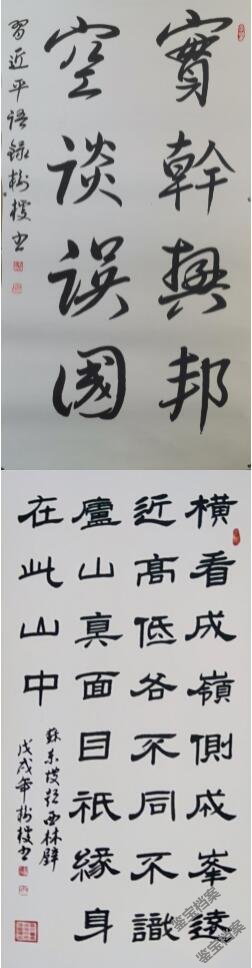 實幹興邦
空談誤國
習近平語錄
橫看成嶺側成峯遠
近高低各不同不識
廬山真面目祇緣身
在此山中
蘇東坡題西林壁
戊戌年
鉴宝档案
鉴宝档案